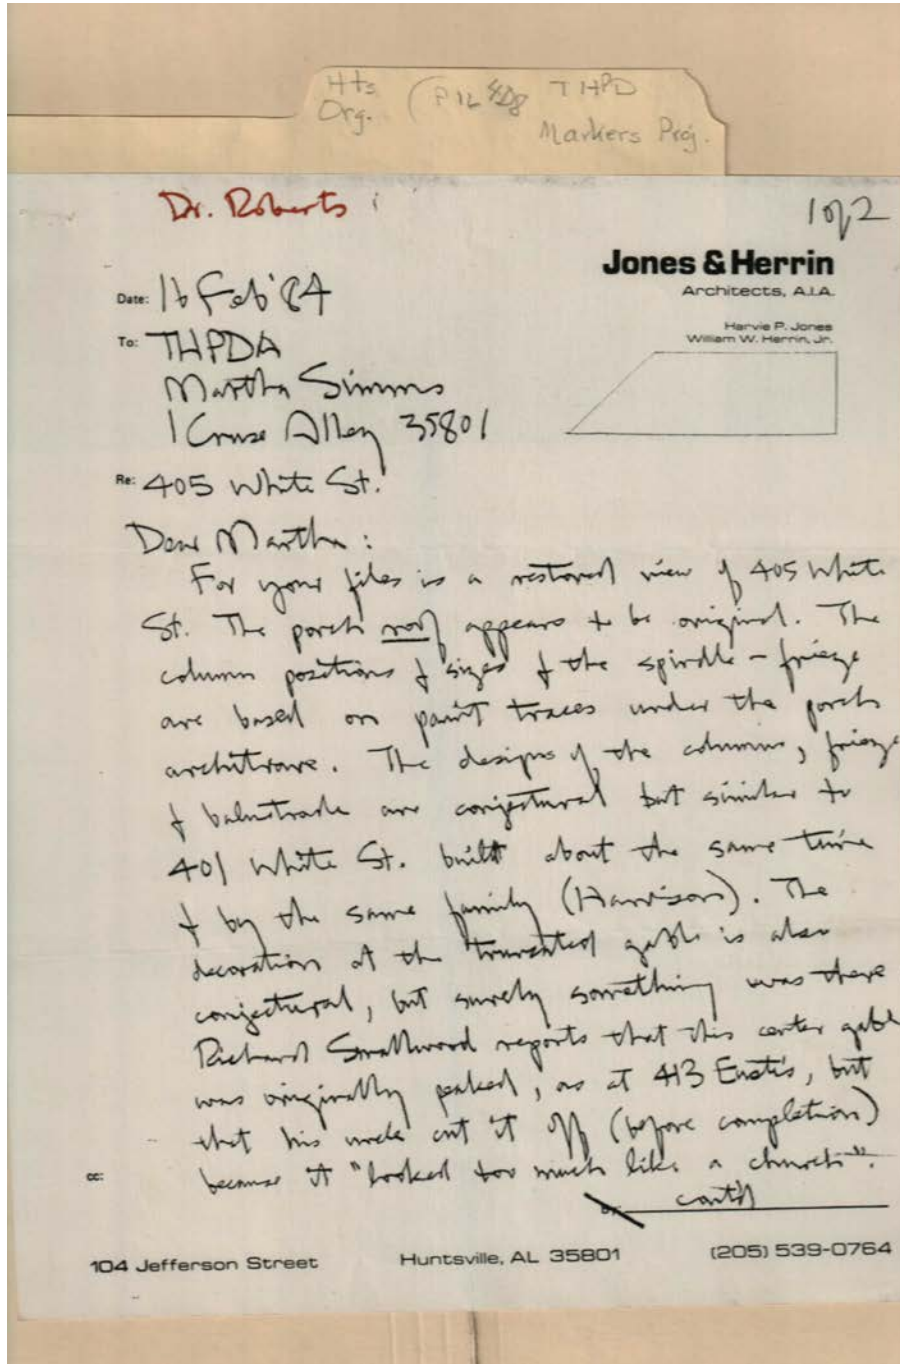 Hts THPD
Org. (PIL Markers Proj.
Dr. Roberts
1 of 2
Jones & Herrin
Architects, A.I.A.
Harvie P. Jones
William W. Herrin, Jr.
Date: 16 Feb '84
To: THPDA
Martha Simms
1 Cruse Alley 35801
Re: 405 White St.
Dear Martha:
For your files is a restored view of 405 White
St. The porch roof appears to be original. The
column positions & sizes & the spindle-frieze
are based on paint traces under the porch
architrave. The designs of the columns, frieze
& balustrade are conjectural but similar to
401 White St. built about the same time
& by the same family (Harrison). The
decoration at the truncated gable is also
conjectural, but surely something was there
Richard Smallwood reports that this center gable
was originally peaked, as at 413 Eustis, but
that his uncle cut it off (before completion)
because it "looked too much like a church".
cc:
cont'd
104 Jefferson Street Huntsville, AL 35801 (205) 539-0764